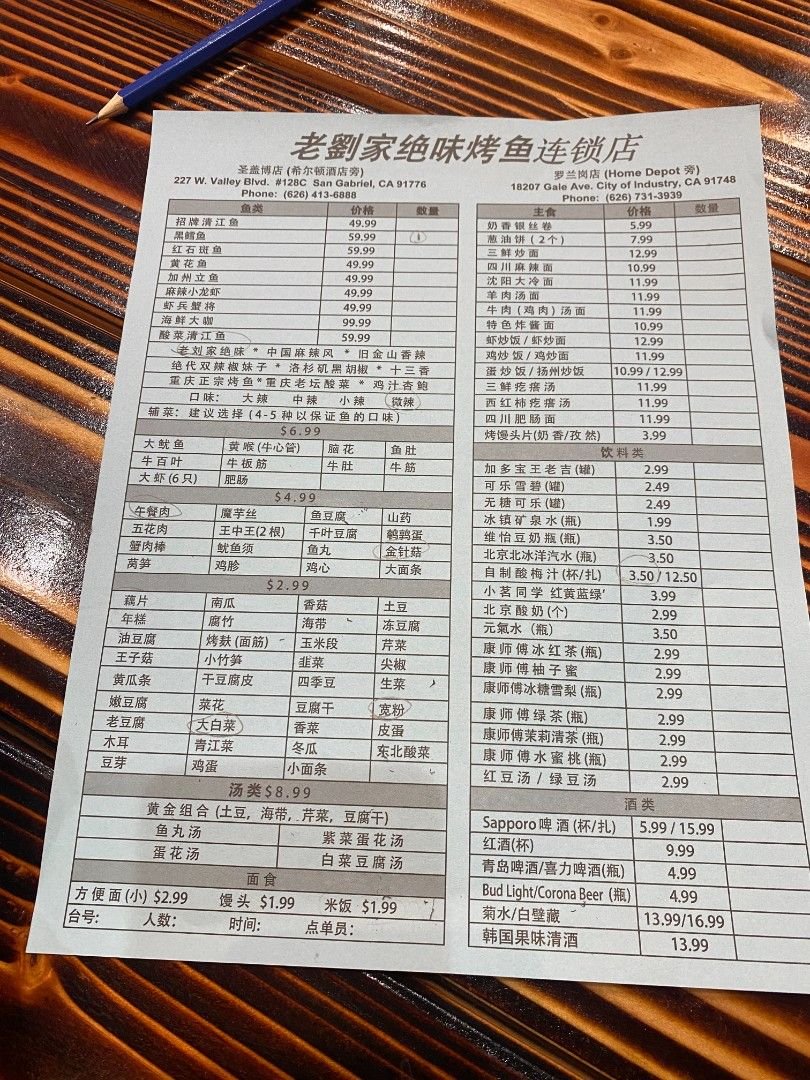 老劉家绝味烤鱼连锁店
圣盖博店 (希尔顿酒店旁)
227 W. Valley Blvd. #128C San Gabriel, CA 91776
Phone: (626) 413-6888
罗兰岗店 (Home Depot 旁)
18207 Gale Ave. City of Industry, CA 91748
Phone: (626) 731-3939
鱼类 价格 数量
招牌清江鱼 49.99
黑鳕鱼 59.99 1
红石斑鱼 59.99
黄花鱼 49.99
加州立鱼 49.99
麻辣小龙虾 49.99
虾兵蟹将 49.99
海鲜大咖 99.99
酸菜清江鱼 59.99
老刘家绝味 * 中国麻辣风 * 旧金山香辣
绝代双辣椒妹子 * 洛杉矶黑胡椒 * 十三香
重庆正宗烤鱼*重庆老坛酸菜 * 鸡汁杏鲍
口味: 大辣 中辣 小辣 微辣
辅菜: 建议选择 (4-5 种以保证鱼的口味)
$6.99
大鱿鱼 黄喉(牛心管) 脑花 鱼肚
牛百叶 牛板筋 牛肚 牛筋
大虾(6只) 肥肠
$4.99
午餐肉 魔芋丝 鱼豆腐 山药
五花肉 王中王(2根) 千叶豆腐 鹌鹑蛋
蟹肉棒 鱿鱼须 鱼丸 金针菇
莴笋 鸡胗 鸡心 大面条
$2.99
藕片 南瓜 香菇 土豆
年糕 腐竹 海带 冻豆腐
油豆腐 烤麸(面筋) 玉米段 芹菜
王子菇 小竹笋 韭菜 尖椒
黄瓜条 干豆腐皮 四季豆 生菜
嫩豆腐 菜花 豆腐干 宽粉
老豆腐 大白菜 香菜 皮蛋
木耳 青江菜 冬瓜 东北酸菜
豆芽 鸡蛋 小面条
汤类$8.99
黄金组合 (土豆, 海带, 芹菜, 豆腐干)
鱼丸汤 紫菜蛋花汤
蛋花汤 白菜豆腐汤
面食
方便面(小) $2.99 馒头 $1.99 米饭 $1.99
台号: 人数: 时间: 点单员:
主食 价格 数量
奶香银丝卷 5.99
葱油饼 (2个) 7.99
三鲜炒面 12.99
四川麻辣面 10.99
沈阳大冷面 11.99
羊肉汤面 11.99
牛肉(鸡肉)汤面 11.99
特色炸酱面 10.99
虾炒饭/虾炒面 12.99
鸡炒饭/鸡炒面 11.99
蛋炒饭/扬州炒饭 10.99 / 12.99
三鲜疙瘩汤 11.99
西红柿疙瘩汤 11.99
四川肥肠面 11.99
烤馒头片(奶香/孜然) 3.99
饮料类
加多宝王老吉(罐) 2.99
可乐雪碧(罐) 2.49
无糖可乐(罐) 2.49
冰镇矿泉水(瓶) 1.99
维怡豆奶瓶(瓶) 3.50
北京北冰洋汽水(瓶) 3.50
自制酸梅汁(杯/扎) 3.50 / 12.50
小茗同学 红黄蓝绿' 3.99
北京酸奶(个) 2.99
元氣水 (瓶) 3.50
康师傅冰红茶(瓶) 2.99
康师傅柚子蜜 2.99
康师傅冰糖雪梨(瓶) 2.99
康师傅绿茶(瓶) 2.99
康师傅茉莉清茶(瓶) 2.99
康师傅水蜜桃(瓶) 2.99
红豆汤 / 绿豆汤 2.99
酒类
Sapporo啤酒(杯/扎) 5.99 / 15.99
红酒(杯) 9.99
青岛啤酒/喜力啤酒(瓶) 4.99
Bud Light/Corona Beer (瓶) 4.99
菊水/白璧藏 13.99/16.99
韩国果味清酒 13.99